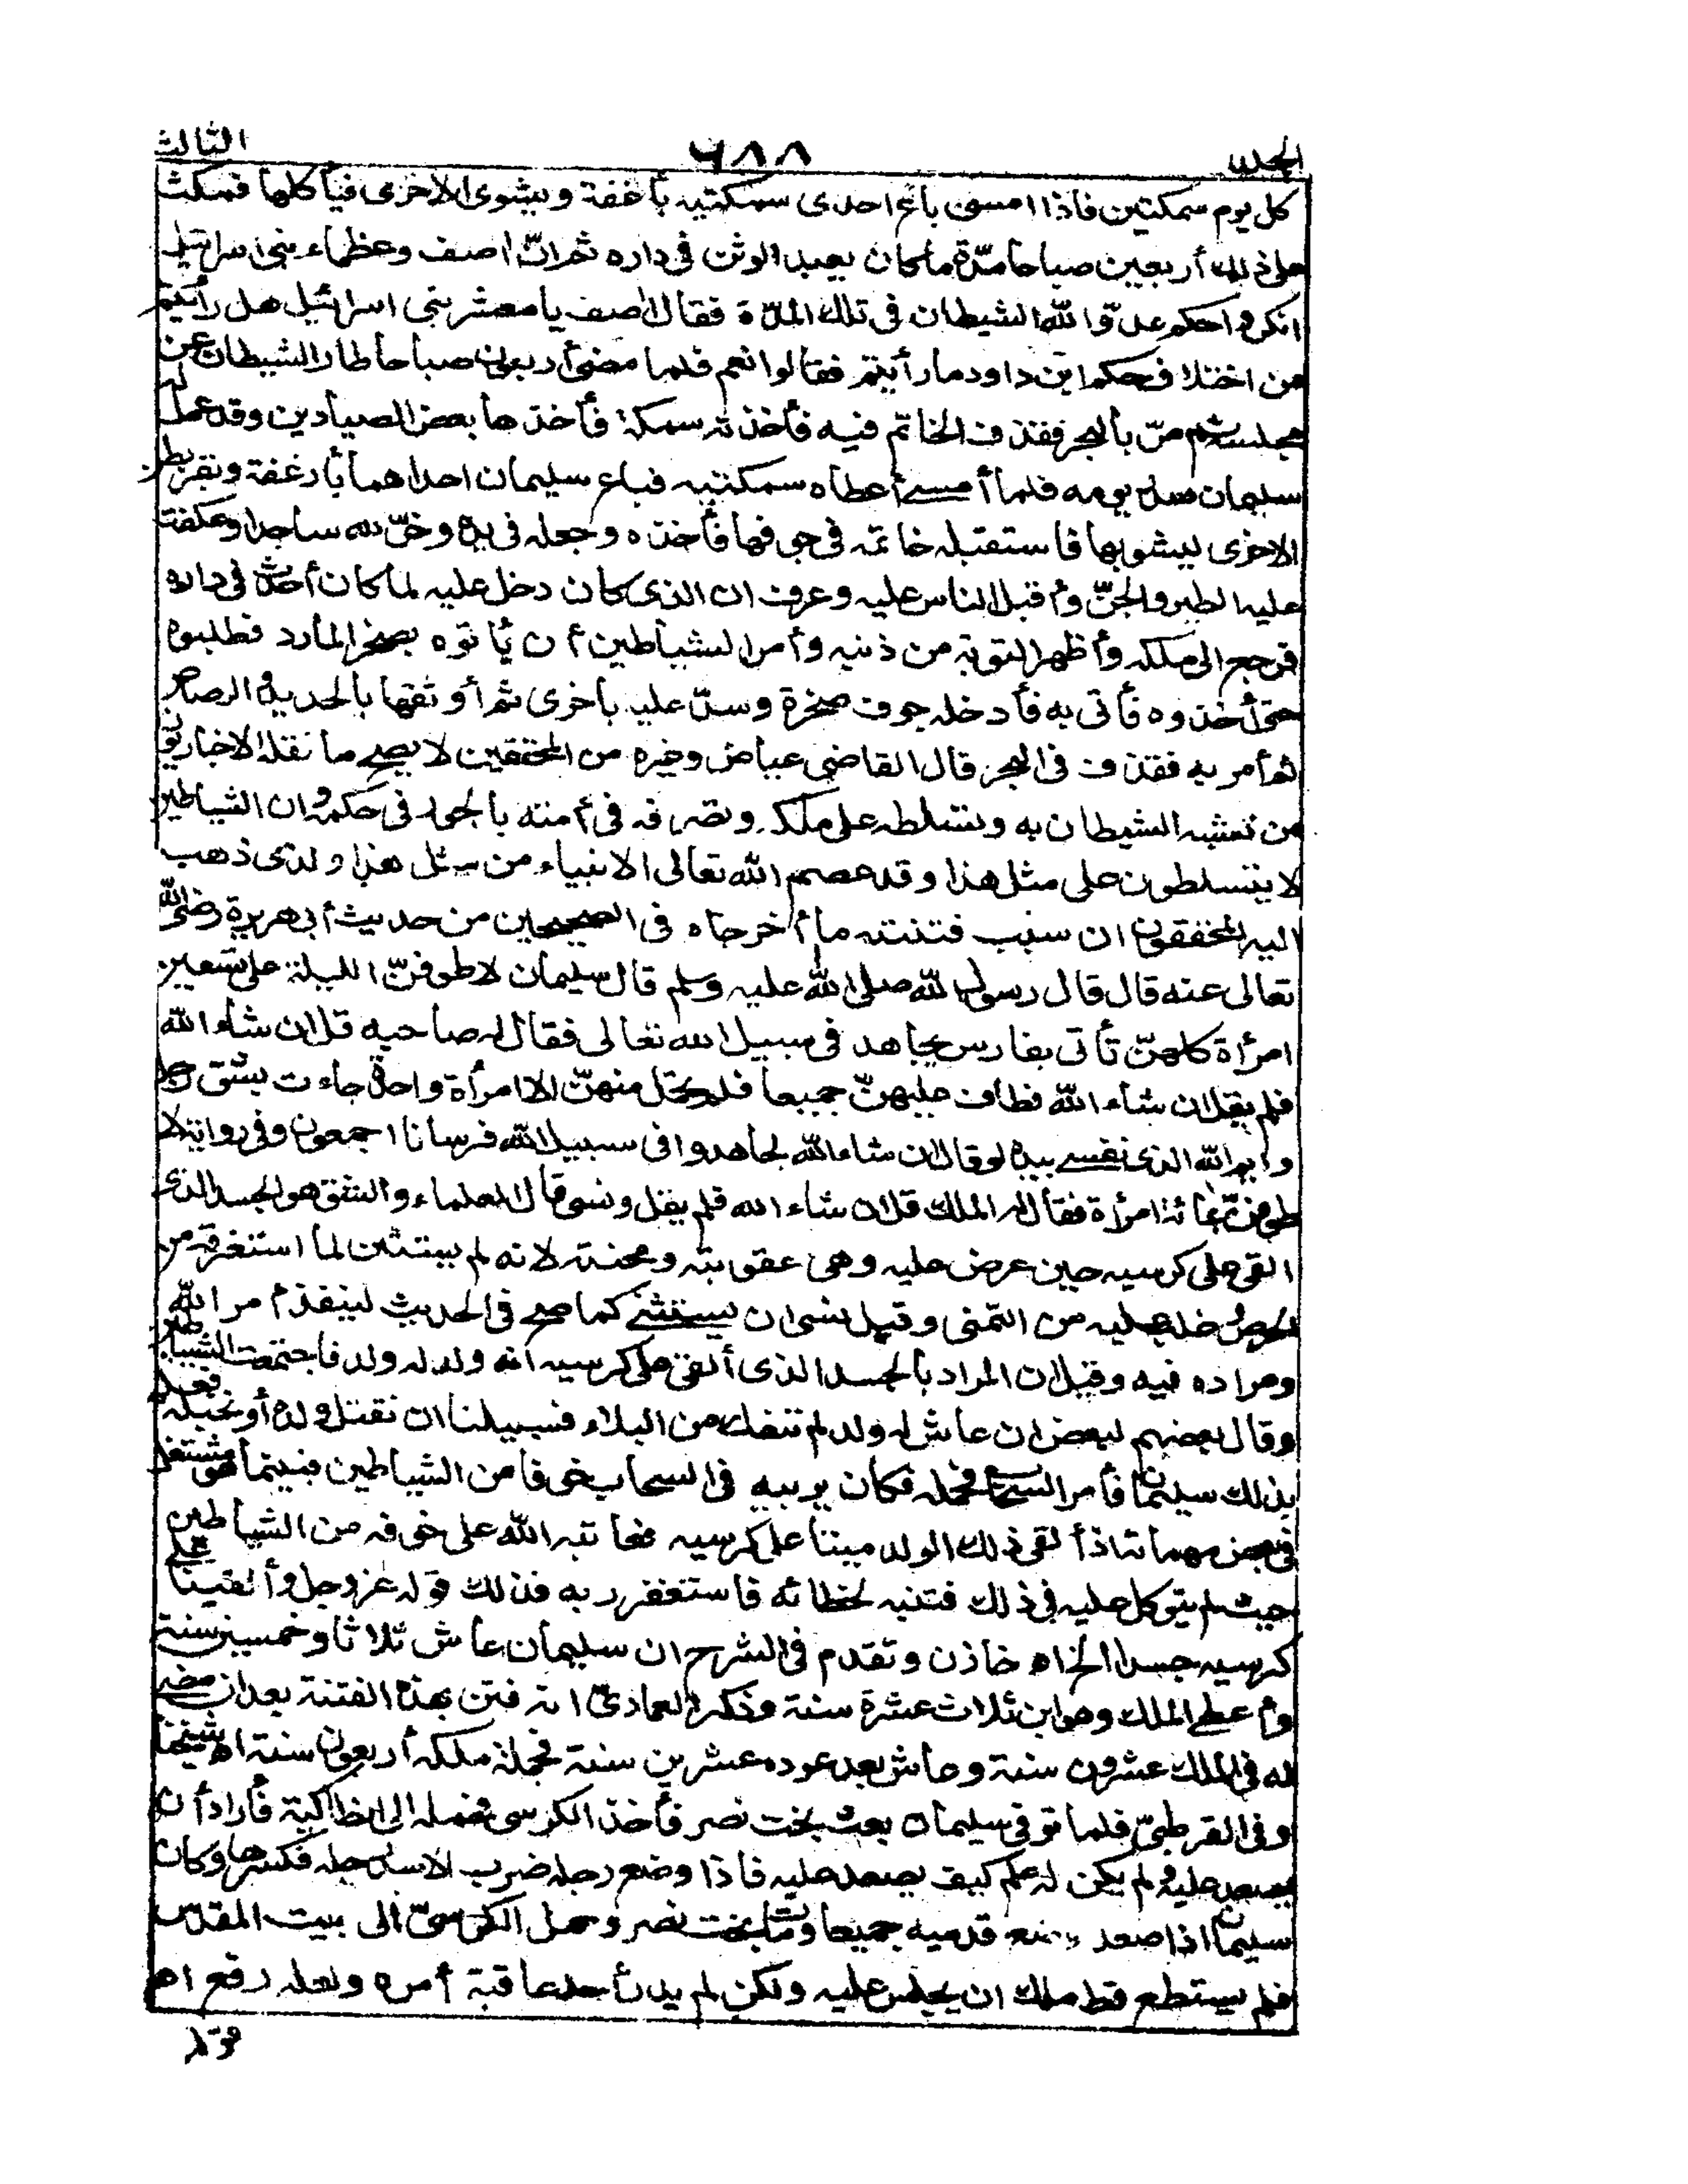 المجلد ٦٨٨ الثالث
كل يوم سمكتين فاذا امسى باع احدى سمكتيه بأرغفة ويشوى الاخرى فيأكلها فمكث
على ذلك أربعين صباحا مدّة ما كان يعبد الوثن فى داره ثم انّ اصف وعظماء بنى اسرائيل
انكروا حكم عدوّ الله الشيطان فى تلك المدّة فقال اصف يا معشر بنى اسرائيل هل رأيتم
من اختلاف حكم ابن داود ما رأيتم فقالوا نعم فلما مضى أربعون صباحا طار الشيطان عن
مجلسه ثم مرّ بالبحر فقذف الخاتم فيه فأخذته سمكة فأخذها بعض الصيادين وقد عمل له
سليمان صدر يومه فلما أمسى أعطاه سمكتيه فباع سليمان احداهما بأرغفة وبقر بطن
الاخرى ليشويها فاستقبله خاتمه فى جوفها فأخذه وجعله فى يده وخرّ لله ساجدا وعكفت
عليه الطير والجنّ وأقبل الناس عليه وعرف ان الذى كان دخل عليه لما كان أحدث فى داره
فرجع الى ملكه وأظهر التوبة من ذنبه وأمر الشياطين أن يأتوه بصخر المارد فطلبوه
حتى أخذوه فأتى به فأدخله جوف صخرة وسدّ عليه بأخرى ثم أوثقها بالحديد والرصاص
ثم أمر به فقذف فى البحر قال القاضى عياض وغيره من المحققين لا يصح ما نقله الاخباريون
من تشبه الشيطان به وتسلطه على ملكه وتصرفه فى أمته بالجور فى حكمه وان الشياطين
لا يتسلطون على مثل هذا وقد عصم الله تعالى الانبياء من مثل هذا والذى ذهب
اليه المحققون ان سبب فتنته ما أخرجاه فى الصحيحين من حديث أبى هريرة رضى الله
تعالى عنه قال قال رسول الله صلى الله عليه وسلم قال سليمان لاطوفنّ الليلة على تسعين
امرأة كلهنّ تأتى بفارس يجاهد فى سبيل الله تعالى فقال له صاحبه قل ان شاء الله
فلم يقل ان شاء الله فطاف عليهنّ جميعا فلم يحمل منهنّ الا امرأة واحدة جاءت بشق رجل
وأيم الله الذى نفسى بيده لو قال ان شاء الله لجاهدوا فى سبيل الله فرسانا اجمعون وفى رواية لا
طوفنّ بمائة امرأة فقال له الملك قل ان شاء الله فلم يقل ونسى قال العلماء والشق هو الجسد الذى
القى على كرسيه حين عرض عليه وهى عقوبته ومحنته لانه لم يستثن لما استغرقه من
الحرص وغلب عليه من التمنى وقيل نسى ان يستثنى كما صح فى الحديث لينفذ أمر الله
ومراده فيه وقيل ان المراد بالجسد الذى ألقى على كرسيه انه ولد له ولد فاجتمعت الشياطين
وقال بعضهم لبعض ان عاش له ولد لم ننفك من البلاء فسبيلنا ان نقتل ولده أو نخبله فعلم
بذلك سليمان فأمر السحاب فحمله فكان يربيه فى السحاب خوفا من الشياطين فبينما هو مشتغل
فى بعض مهماته اذ ألقى ذلك الولد ميتا على كرسيه فعاتبه الله على خوفه من الشياطين
حيث لم يتوكل عليه فى ذلك فتنبه لخطائه فاستغفر ربه فذلك قوله عز وجل وألقينا على
كرسيه جسدا الخ اه خازن وتقدم فى الشرح ان سليمان عاش ثلاثا وخمسين سنة
وأعطى الملك وهو ابن ثلاث عشرة سنة وذكر العمادىّ انه فتن بهذه الفتنة بعد ان مضى
له فى الملك عشرون سنة وعاش بعد عوده عشرين سنة فجملة ملكه أربعون سنة اه شيخنا
وفى القرطبىّ فلما توفى سليمان بعث بخت نصر فأخذ الكرسى فحمله الى انطاكية فأراد أن
يصعد عليه ولم يكن له علم كيف يصعد عليه فاذا وضع رجله ضرب الاسد رجله فكسرها وكان
سليمان اذا صعد وضع قدميه جميعا ومات بخت نصر وحمل الكرسىّ الى بيت المقدس
فلم يستطع قط ملك ان يجلس عليه ولكن لم يدر أحد عاقبة أمره ولعله رفع اه